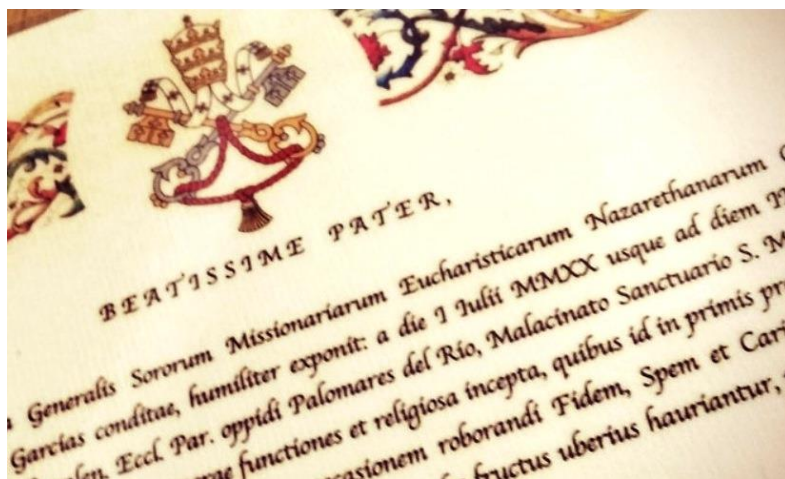 BEATISSIME PATER,
Generalis Sororum Missionariarum Eucharisticarum Nazarethanarum
Garcias conditae, humiliter exponit: a die I Iulii MMXX usque ad diem
Eccl. Par. oppidi Palomares del Río, Malacinato Sanctuario S. M
functiones et religiosa incepta, quibus id in primis
roborandi Fidem, Spem et
fructus uberius hauriantur,